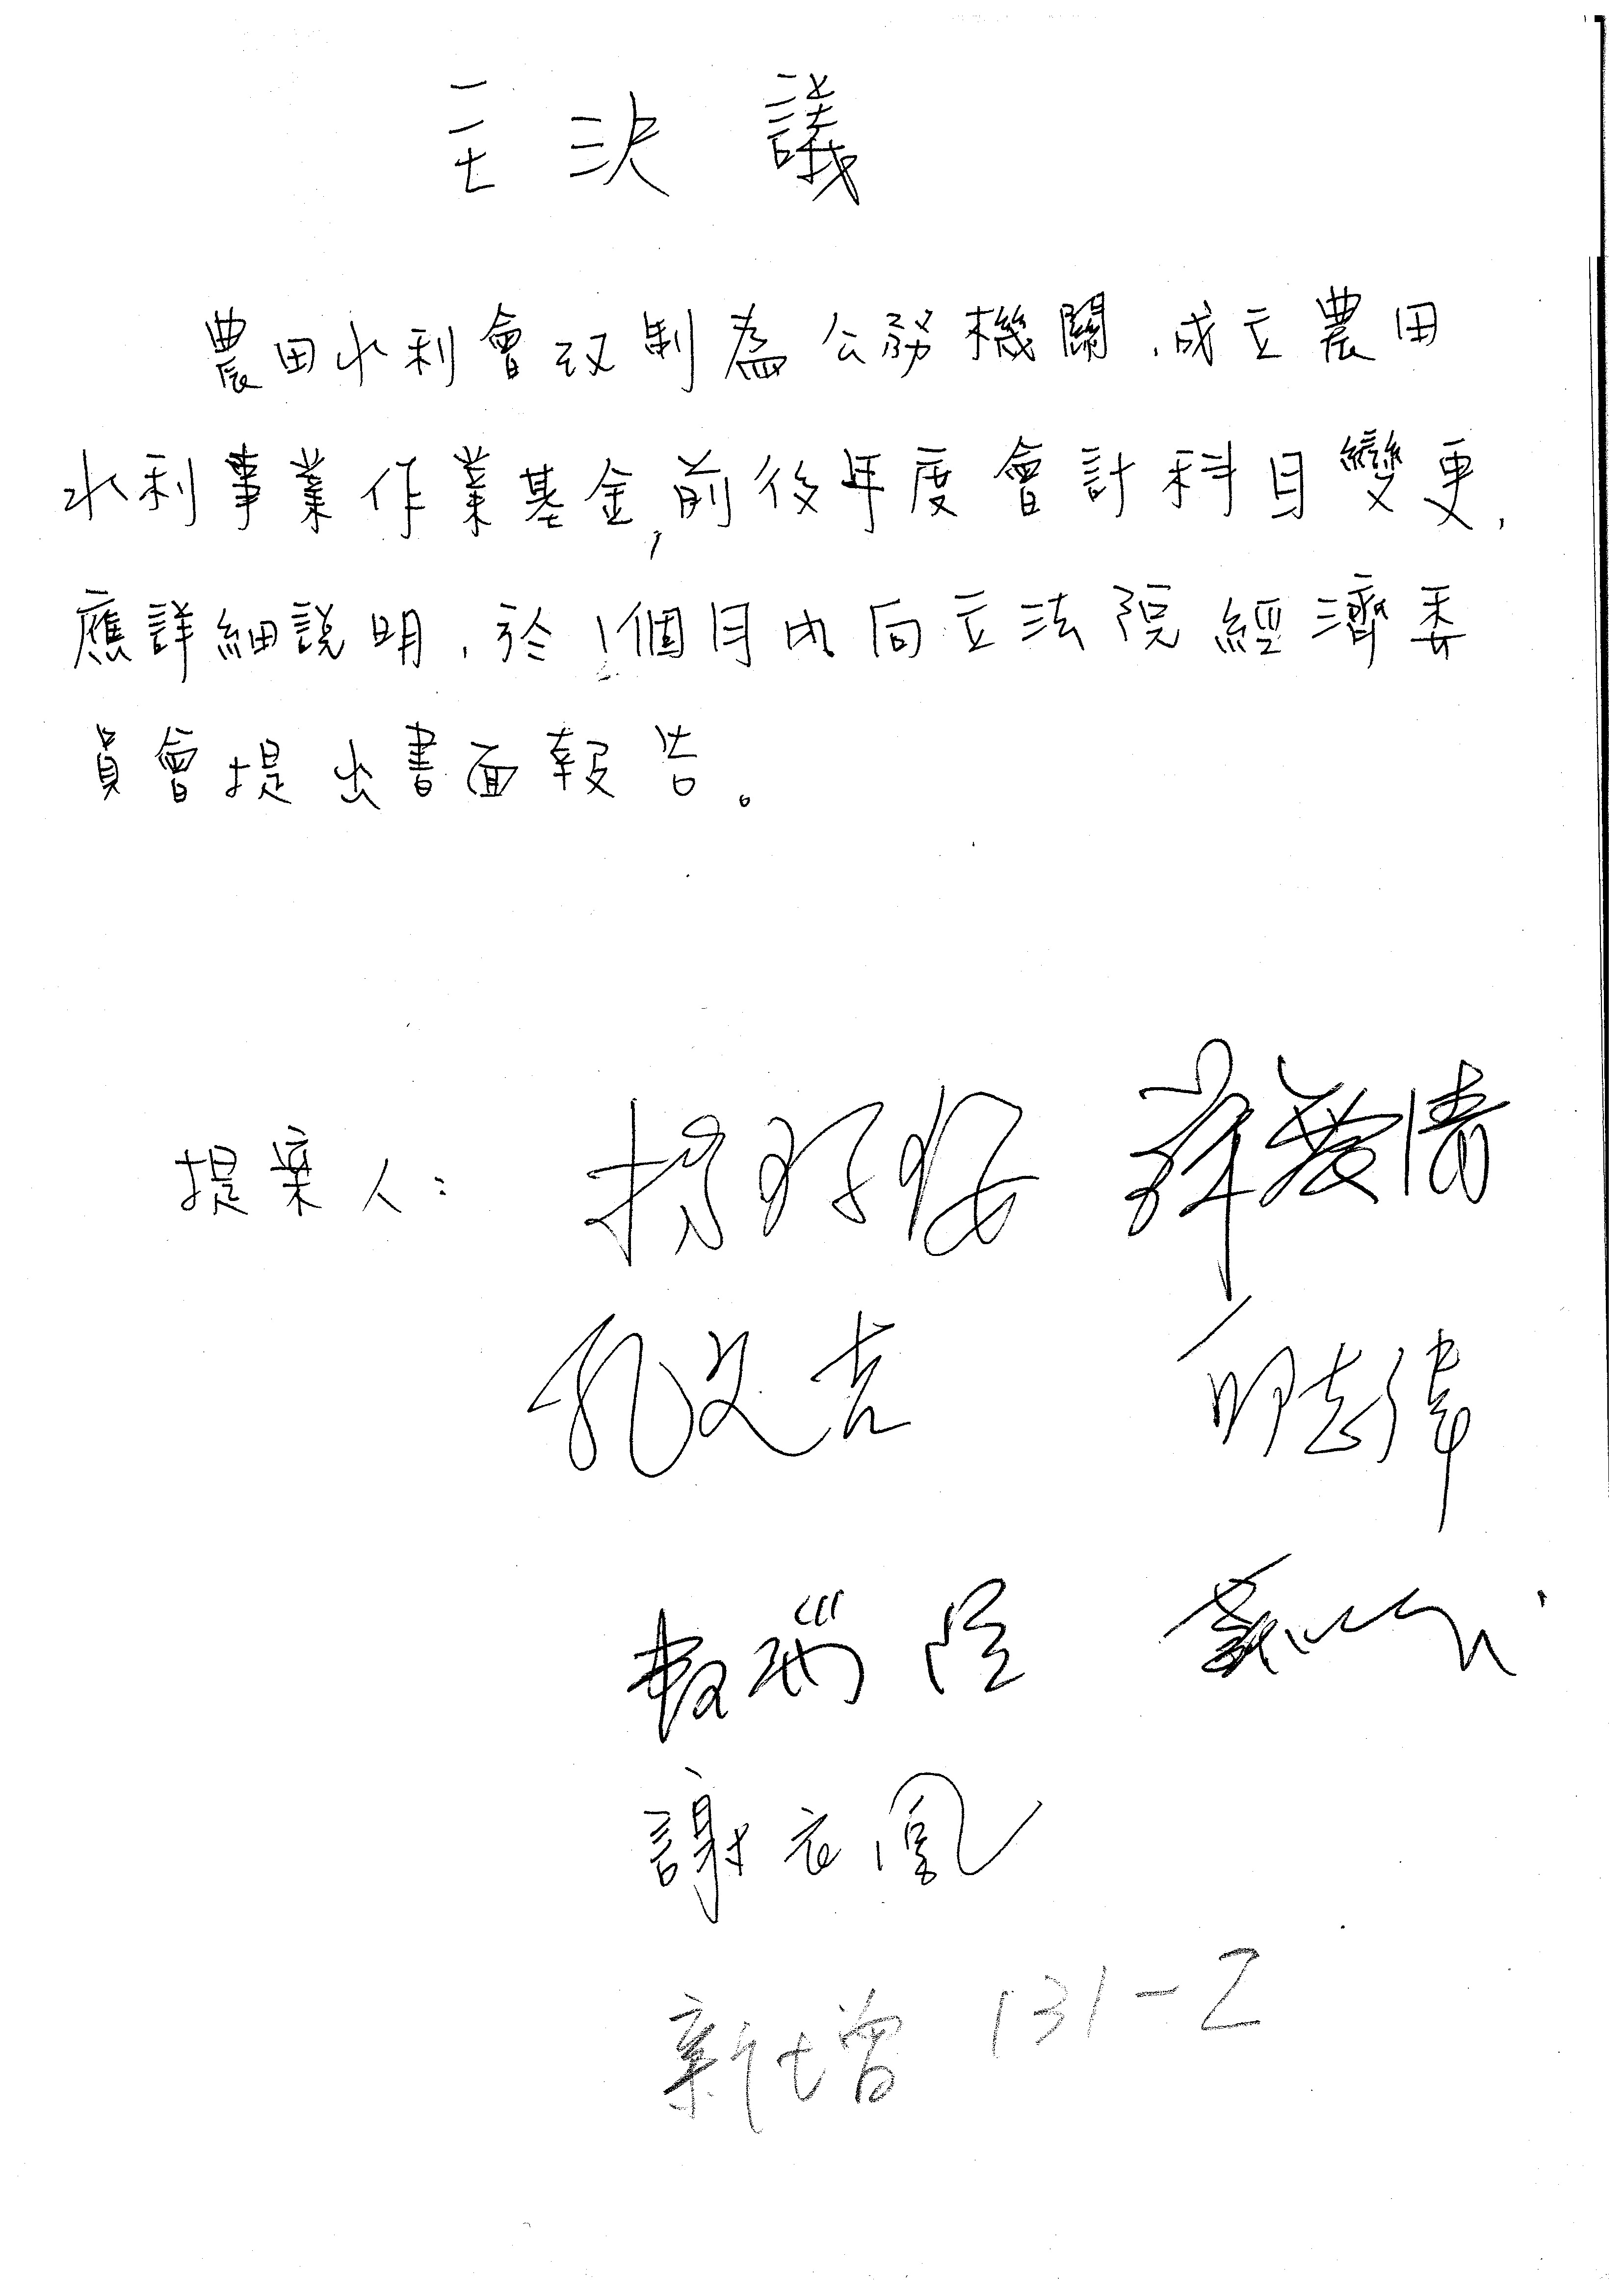 主決議
農田水利會改制為公務機關,成立農田
水利事業作業基金,前後年度會計科目變更,
應詳細說明,於1個月內向立法院經濟委
員會提出書面報告。
提案人:
孔文吉
謝衣鳳
新增 131-2